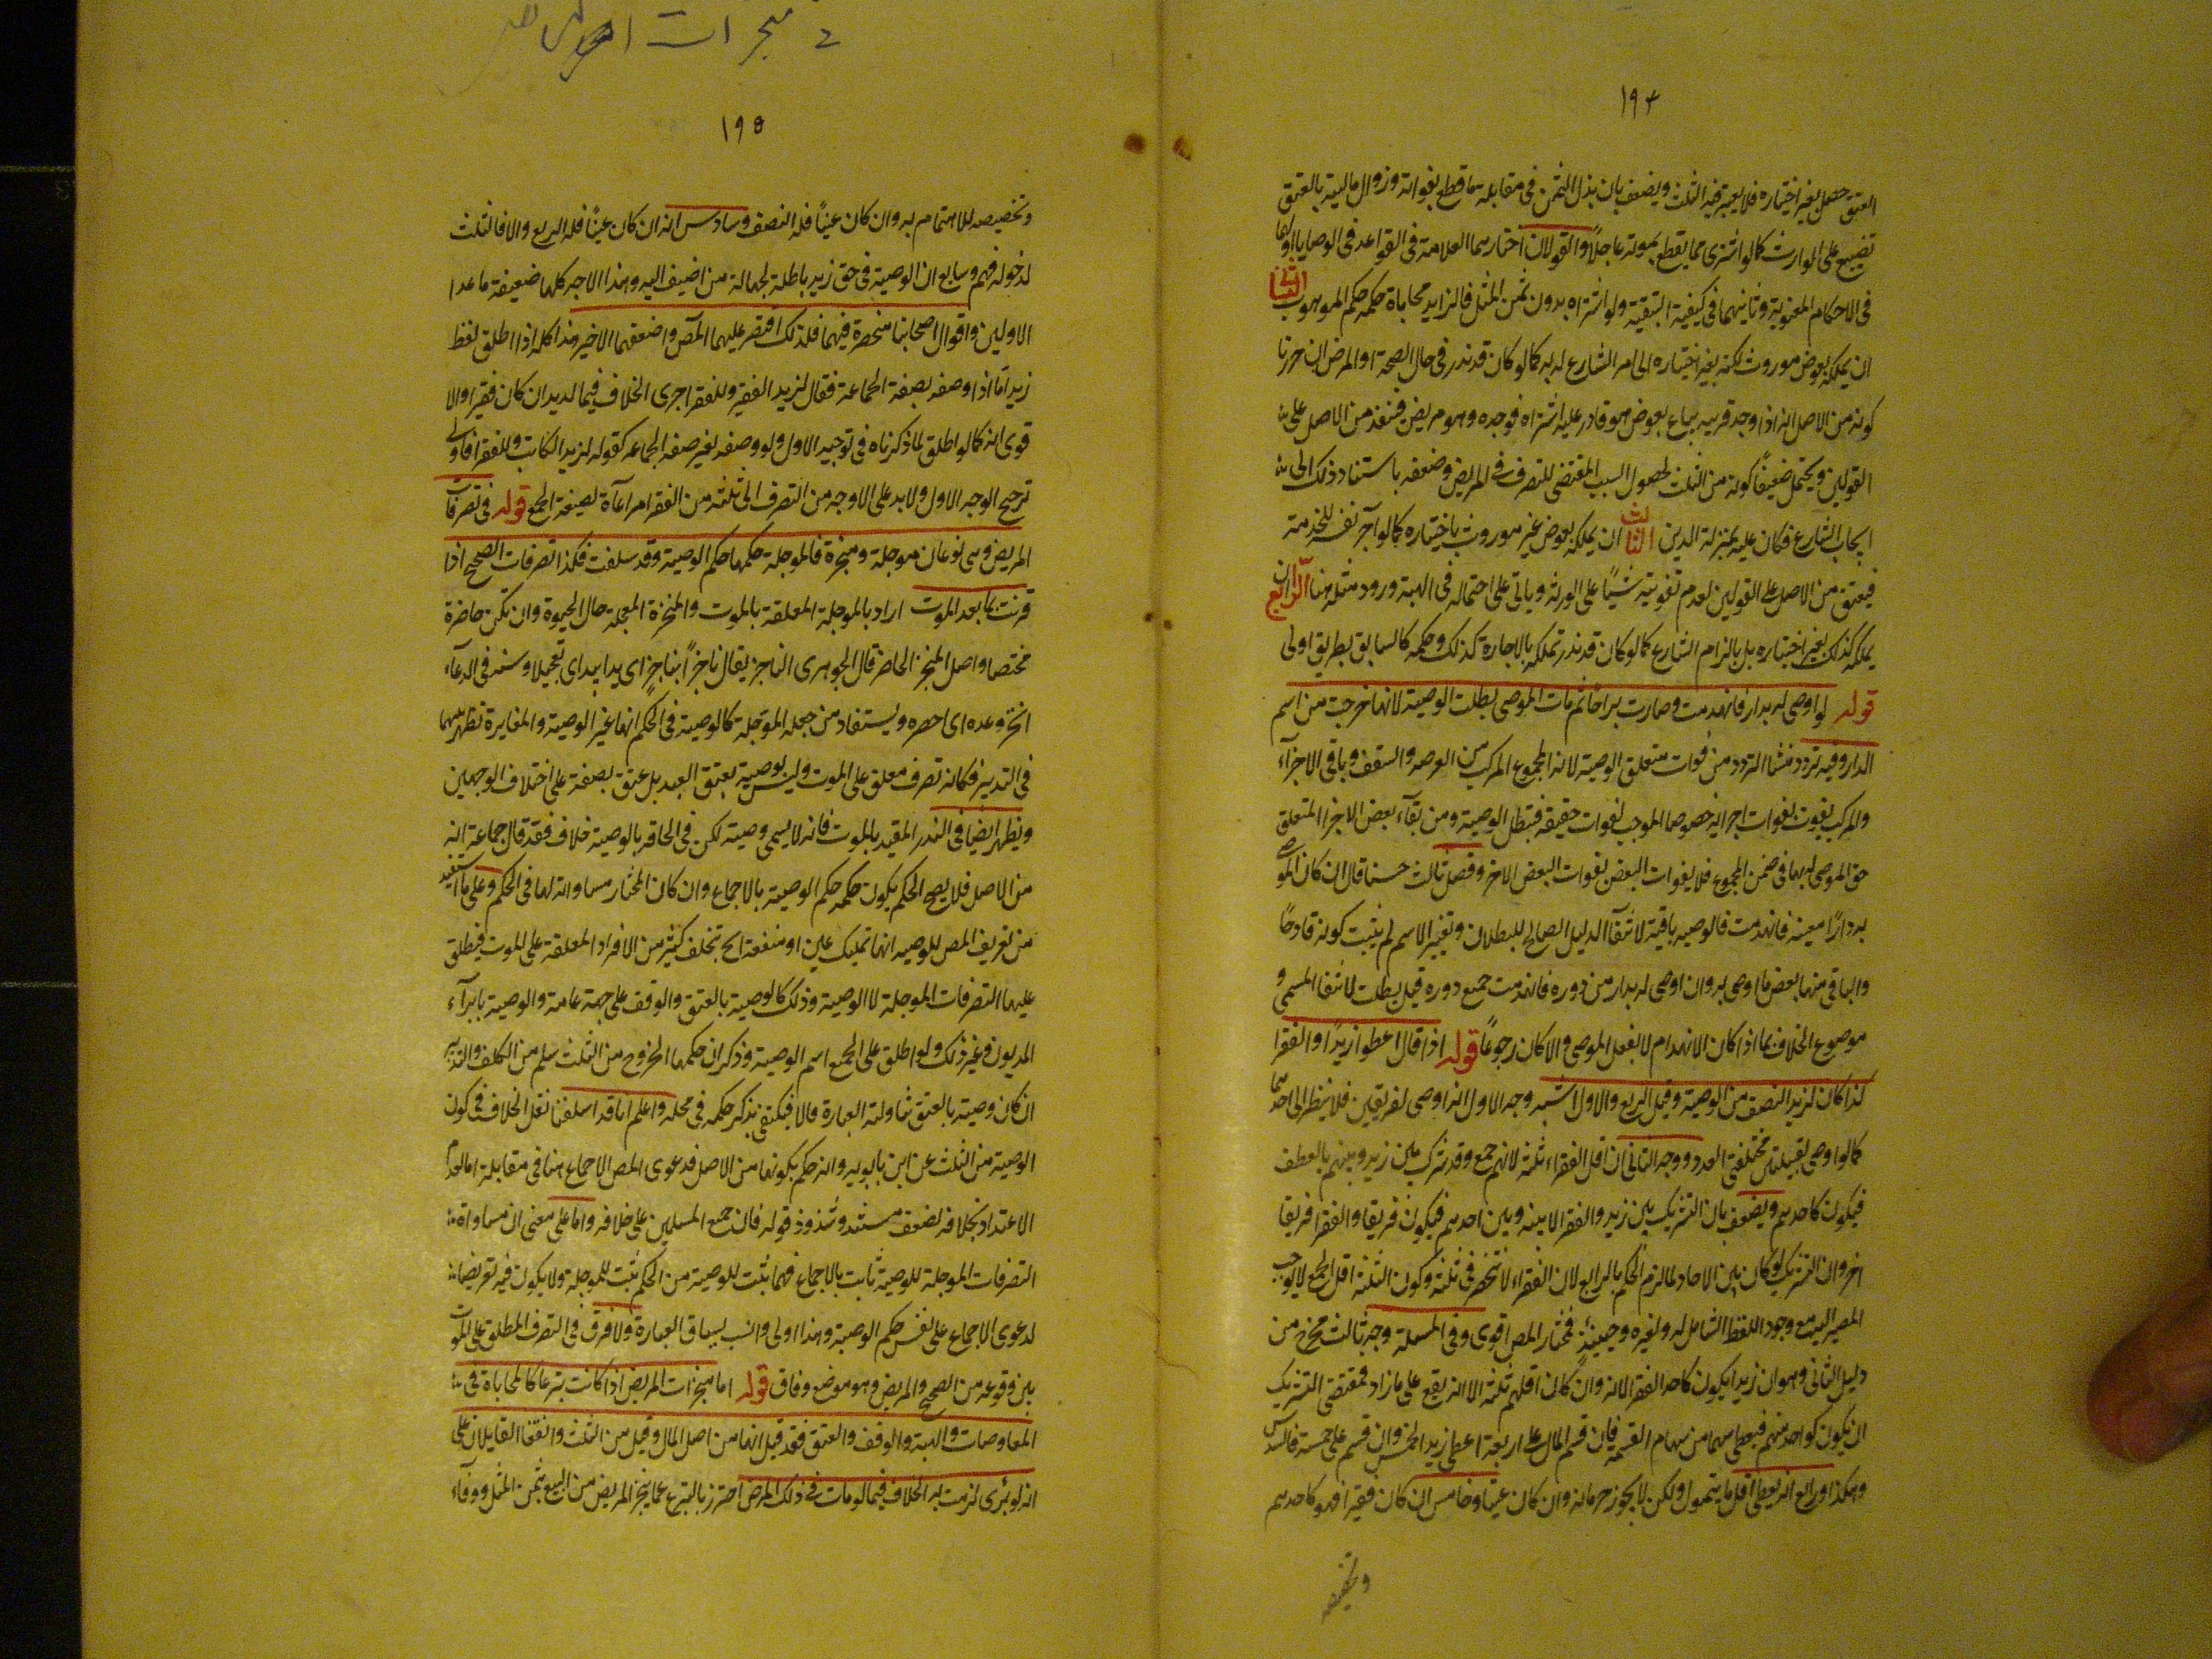 ١٩٤
العتق حصل بغير اختياره فلا يعتبر فيه الثلث ويضعف بان بذل الثمن فى مقابلة ما قطع بفواته وزوال ماليته بالعتق
تضييع على الوارث كما لو اشترى مما يقطع بموته عاجلاً والقولان اختارهما العلامة فى القواعد فى الوصايا اولها
فى الاحكام المعنوية وثانيهما فى كيفية التنقية ولو اشتراه بدون ثمن المثل فالزايد محاباة حكمه حكم الموهوب الثانى
ان يملكه بعوض موروث لكنه بغير اختياره الى امر الشارع له به كما لو كان قد نذر فى حال الصحة او المرض ان جوزنا
كونه من الاصل انه اذا وجد قريبه يباع بعوض هو قادر عليه اشتراه فوجده وهو مريض فينفذ من الاصل على
القولين ويحتمل ضعيفاً كونه من الثلث لحصول السبب المقتضى للتصرف فى المريض وضعفه باستناد ذلك الى
ايجاب الشارع فكان عليه بمنزلة الدين الثالث ان يملكه بعوض غير موروث باختياره كما لو آجر نفسه للخدمة
فيعتق من الاصل على القولين لعدم تفويته شيئاً على الورثة وياتى على احتماله فى الهبة ورود مثله هنا الرابع ان
يملكه كذلك بغير اختياره بل بالزام الشارع كما لو كان قد نذر تملكه بالاجارة كذلك وحكمه كالسابق بطريق اولى
قوله لو اوصى له بدار فانهدمت وصارت براحا ثم مات الموصى بطلت الوصية لانها خرجت من اسم
الدار وفيه تردد منشا التردد من فوات متعلق الوصية لانه المجموع المركب من العرصه والسقف وباقى الاجزآء
والمركب يفوت بفوات اجزائه خصوصا الموجب لفوات حقيقته فتبطل الوصية ومن بقآء بعض الاجزا المتعلق
حق الموصى له بها فى ضمن المجموع فلا يفوات البعض لفوات البعض الاخر وفصل ثالث حسنا قال ان كان الموصى
به دارًا معينه فانهدمت فالوصيه باقية لانتفآ الدليل الصالح للبطلان وتغيير الاسم لم يثبت كونه قادحًا
والباقى منها بعض ما اوصى به وان اوصى له بدار من دوره فانهدمت جميع دوره قبل بطلت لانتفا المسمى و
موضوع الخلاف بما اذا كان الانهدام لا بفعل الموصى والا كان رجوعًا قوله اذا قال اعطوا زيدًا والفقرا
كذا كان لزيد النصف من الوصية وقيل الربع والاول اشبه وجه الاول انه اوصى لفريقين فلا ينظر الى احدهما
كما لو اوصى لقبيلتين مختلفتى العدد ووجه الثانى ان اقل الفقراء ثلثة لانهم جمع وقد شرك بين زيد وبينهم بالعطف
فيكون كاحدهم ويضعف بان التشريك بين زيد والفقرا لا بينه وبين احدهم فيكون فريقا والفقرا فريقا
اخر وان التشريك لو كان بين الاحاد لما لزم الحكم بالرابع لان الفقراء لا تنحصر فى ثلثة وكون الثلثة اقل الجمع لا يوجب
المصير اليه مع وجود اللفظ الشامل له ولغيره وحينئذ فمختار المص اقوى وفى المسئلة وجه ثالث مخرج من
دليل الثانى وهو ان زيدا يكون كاحد الفقرا لانه وان كان اقلهم ثلثه الا انه يقع على ما زاد فمقتضى التشريك
ان يكون كواحد منهم فيعطى سهما من سهام القسمه فان قسم المال على اربعة اعطى زيد الخمس وان قسم على خمسة فالسدس
وهكذا ورابع انه يعطى اقل ما يتمول ولكن لا يجوز حرمانه وان كان غنيا وخامس ان كان فقيرا فهو كاحدهم
وتخصيصه
١٩٥
وتخصيصه للاهتمام به وان كان غنياً فله النصف وسادس انه ان كان غنيًا فله الربع والا فالثلث
لدخوله فيهم وسابع ان الوصية فى حق زيد باطلة لجهالة من اضيف اليه وهذا الاوجه كلها ضعيفة ما عدا
الاولين واقوال اصحابنا منحصرة فيهما فلذلك اقتصر عليهما المص واضعفهما الاخير هذا كله اذا اطلق لفظ
زيد امّا اذا وصفه بصفة الجماعة فقال لزيد الفقير وللفقرا جرى الخلاف فيما لزيد ان كان فقيرا والا
قوى انه كما لو اطلق لما ذكرناه فى توجيه الاول ولو وصفه بغير صفه الجماعه كقوله لزيد الكاتب وللفقرا فاولى
ترجيح الوجه الاول ولا بد على الاوجه من التصرف الى ثلثه من الفقرا مراعآة لصيغة الجمع قوله فى تصرفات
المريض وهى نوعان موجلة ومنجزة فالموجلة حكمها حكم الوصية وقد سلفت فكذا تصرفات الصحيح اذا
قرنت بما بعد الموت اراد بالموجلة المعلقة بالموت والمنجزة المعجلة حال الحيوة وان تكن حاضرة
مختصا واصل المنجز الحاضر قال الجوهرى الناجز يقال ناجزاً بناجز اى يدا بيد اى تعجيلا وسنه فى الدعآء
انجز وعده اى احضره ويستفاد من جعله الموجلة كالوصية فى الحكم انها غير الوصية والمغايرة تظهر بينهما
فى التدبير فكانه تصرف معلق على الموت وليس بوصية بعتق العبد بل عتق بصفة على اختلاف الوجهين
ويظهر ايضا فى النذر المقيد بالموت فانه لا يسمى وصية لكن فى الحاقه بالوصية خلاف فقد قال جماعة انه
من الاصل فلا يصح الحكم بكون حكمه حكم الوصية بالاجماع وان كان المختار مساواته لها فى الحكم وعلى ما استفيد
من تعريف المص للوصيه انها تمليك عين او منفعة الخ تخلف كثير من الافراد المعلقة على الموت فيطلق
عليها التصرفات الموجلة لا الوصية وذلك كالوصية بالعتق والوقف على جهة عامة والوصية بابرآء
المديون وغير ذلك ولو اطلق على الجميع اسم الوصية وذكر ان حكمها الخروج من الثلث سلم من التكلف والتدبير
ان كان وصية بالعتق تناولته العبارة والا فيكتفى بذكر حكمه فى محله واعلم انا قد اسلفنا نقل الخلاف فى كون
الوصية من الثلث عن ابن بابويه وانه حكم بكونها من الاصل فدعوى المص الاجماع هنا فى مقابلة اما لعدم
الاعتداد بخلافه لضعف مستنده وشذوذ قوله فان جميع المسلمين على خلافه واما على معنى ان مساواة
التصرفات الموجلة للوصية ثابت بالاجماع فهما ثبت للوصية من الحكم ثبت للموجلة ولا يكون فيه تعريضا
لدعوى الاجماع على نفس حكم الوصية وهذا اولى وانسب بسياق العبارة ولا فرق فى التصرف المطلق على الموت
بين وقوعه من الصحيح والمريض وهو موضع وفاق قوله اما منجزات المريض اذا كانت تبرعا كالمحاباة فى
المعاوضات والهبة والوقف والعتق فقد قيل انها من اصل المال وقيل من الثلث واتفقا القايلان على
انه لو برئ لزمت به الخلاف فيما لو مات فى ذلك المرض احترز بالتبرع عما ينجز المريض من البيع بثمن المثل ووفآء